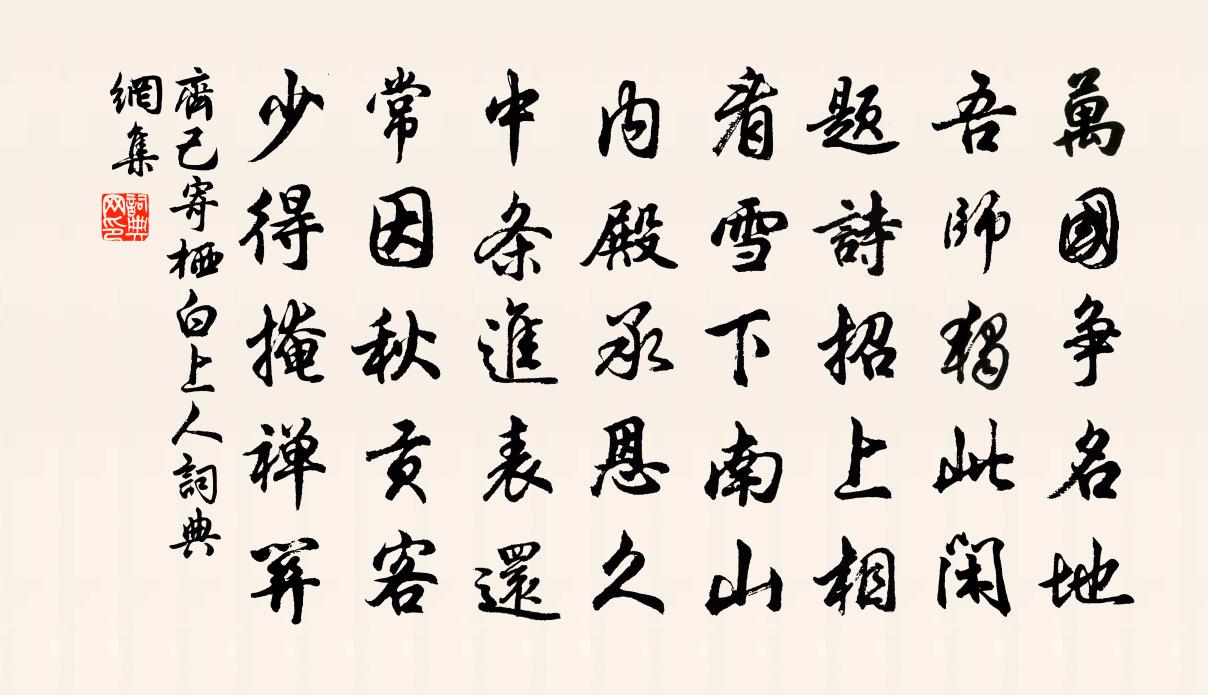 萬國争名地
吾師獨此閑
題詩招上相
看雪下南山
内殿承恩久
中条進表還
常因秋貢客
少得掩禅關
齊己寄栖白上人詞典
網集
詞典
网印